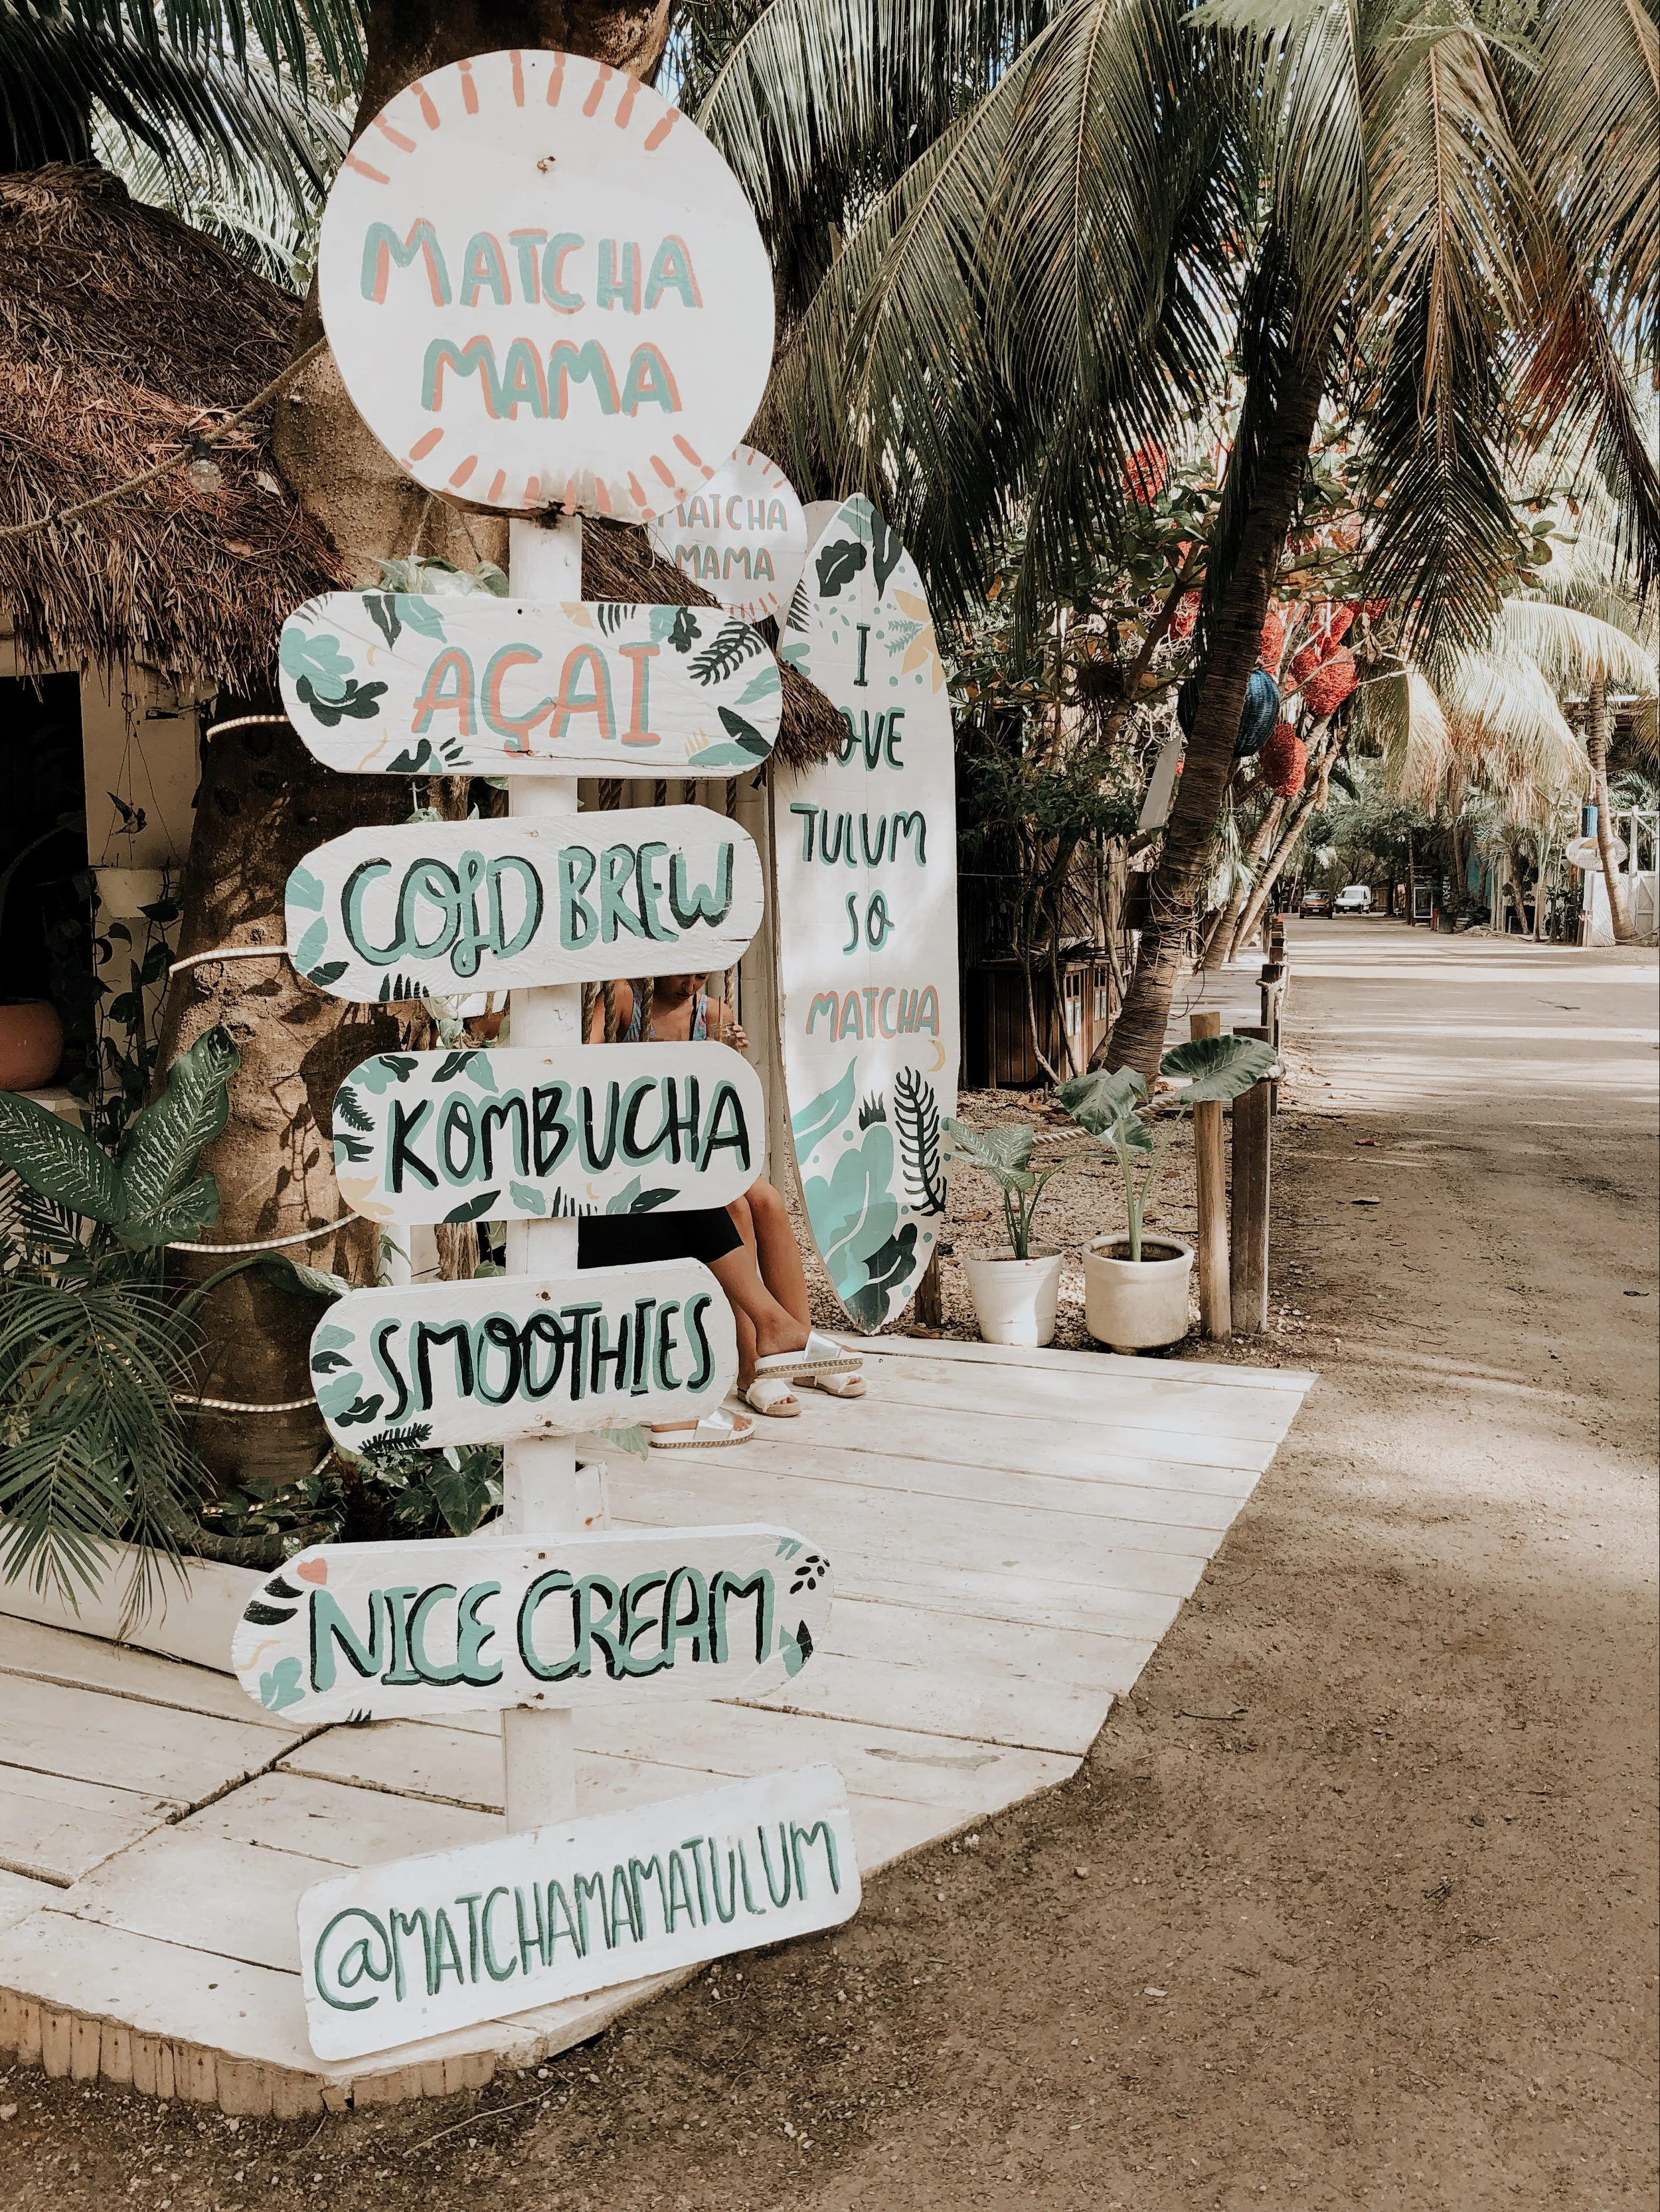 MATCHA
MAMA
AÇAI
COLD BREW
KOMBUCHA
SMOOTHIES
NICE CREAM
@MATCHAMAMATULUM
MATCHA
MAMA
I
LOVE
TULUM
SO
MATCHA